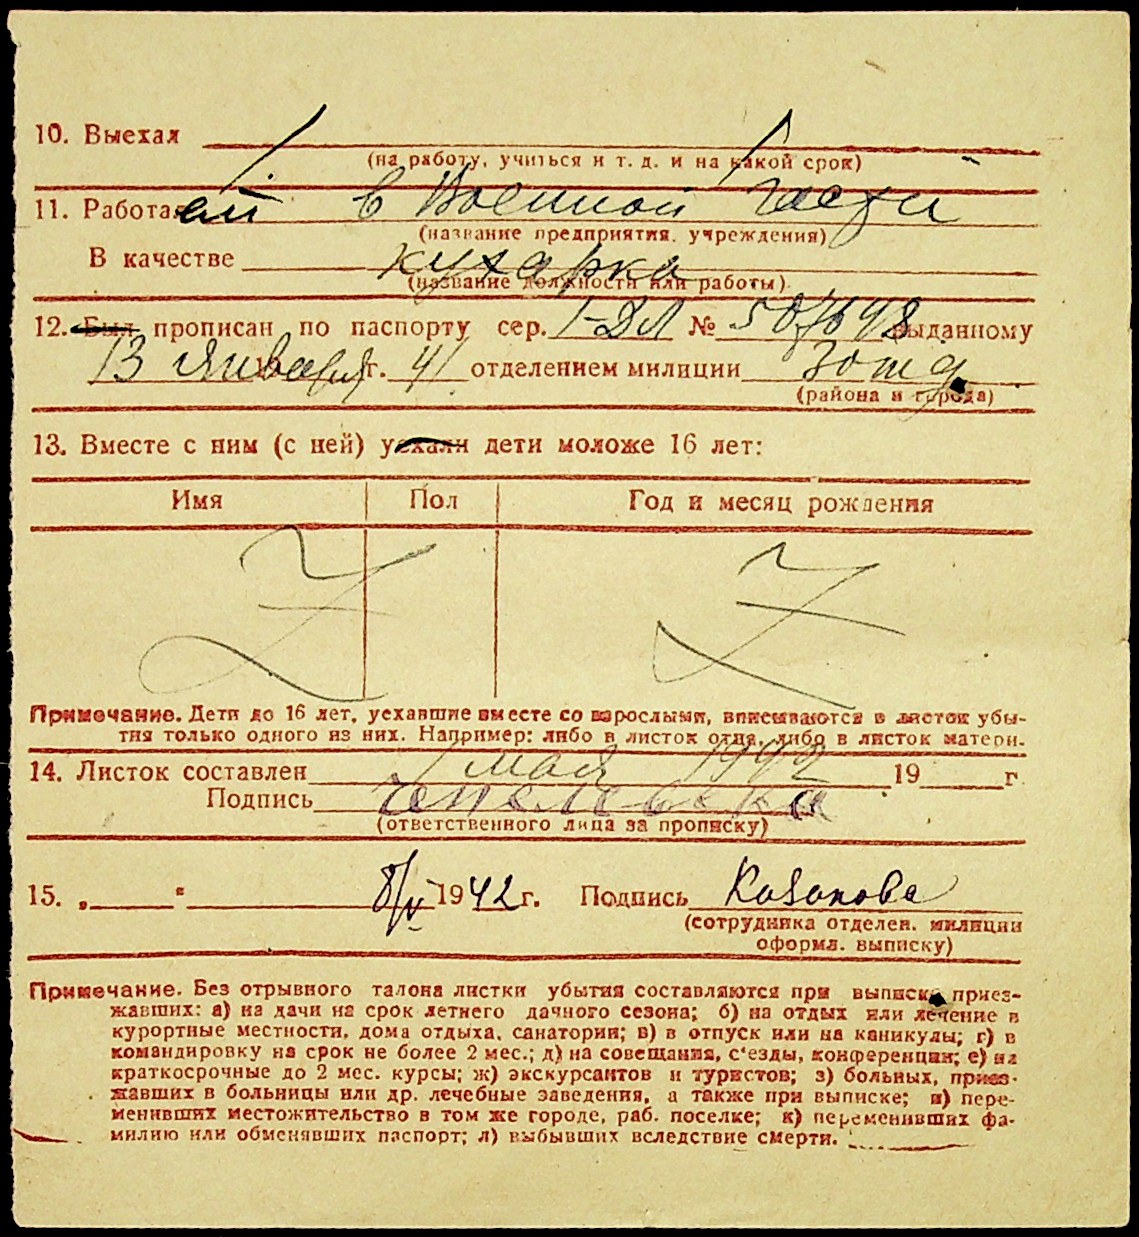 10. Выехал
(на работу, учиться и т. д. и на какой срок)
11. Работает в Военной Части
(название предприятия, учреждения)
В качестве кухарка
(название должности или работы)
12. Был прописан по паспорту сер. 1-ДЛ № 507698 выданному
13 января г. 41 отделением милиции
(района и города)
13. Вместе с ним (с ней) уехали дети моложе 16 лет:
Имя Пол Год и месяц рождения
Z Z
Примечание. Дети до 16 лет, уехавшие вместе со взрослыми, вписываются в листок убы-
тия только одного из них. Например: либо в листок отца, либо в листок матери.
14. Листок составлен 1 мая 1942 19 г
Подпись
(ответственного лица за прописку)
15. „ " 8/V 1942 г. Подпись Казакова
(сотрудника отделен. милиции
оформл. выписку)
Примечание. Без отрывного талона листки убытия составляются при выписке приез-
жавших: а) на дачи на срок летнего дачного сезона; б) на отдых или лечение в
курортные местности, дома отдыха, санатории; в) в отпуск или на каникулы; г) в
командировку на срок не более 2 мес.; д) на совещания, с'езды, конференции; е) на
краткосрочные до 2 мес. курсы; ж) экскурсантов и туристов; з) больных, приез-
жавших в больницы или др. лечебные заведения, а также при выписке; и) пере-
менивших местожительство в том же городе, раб. поселке; к) переменивших фа-
милию или обменявших паспорт; л) выбывших вследствие смерти.